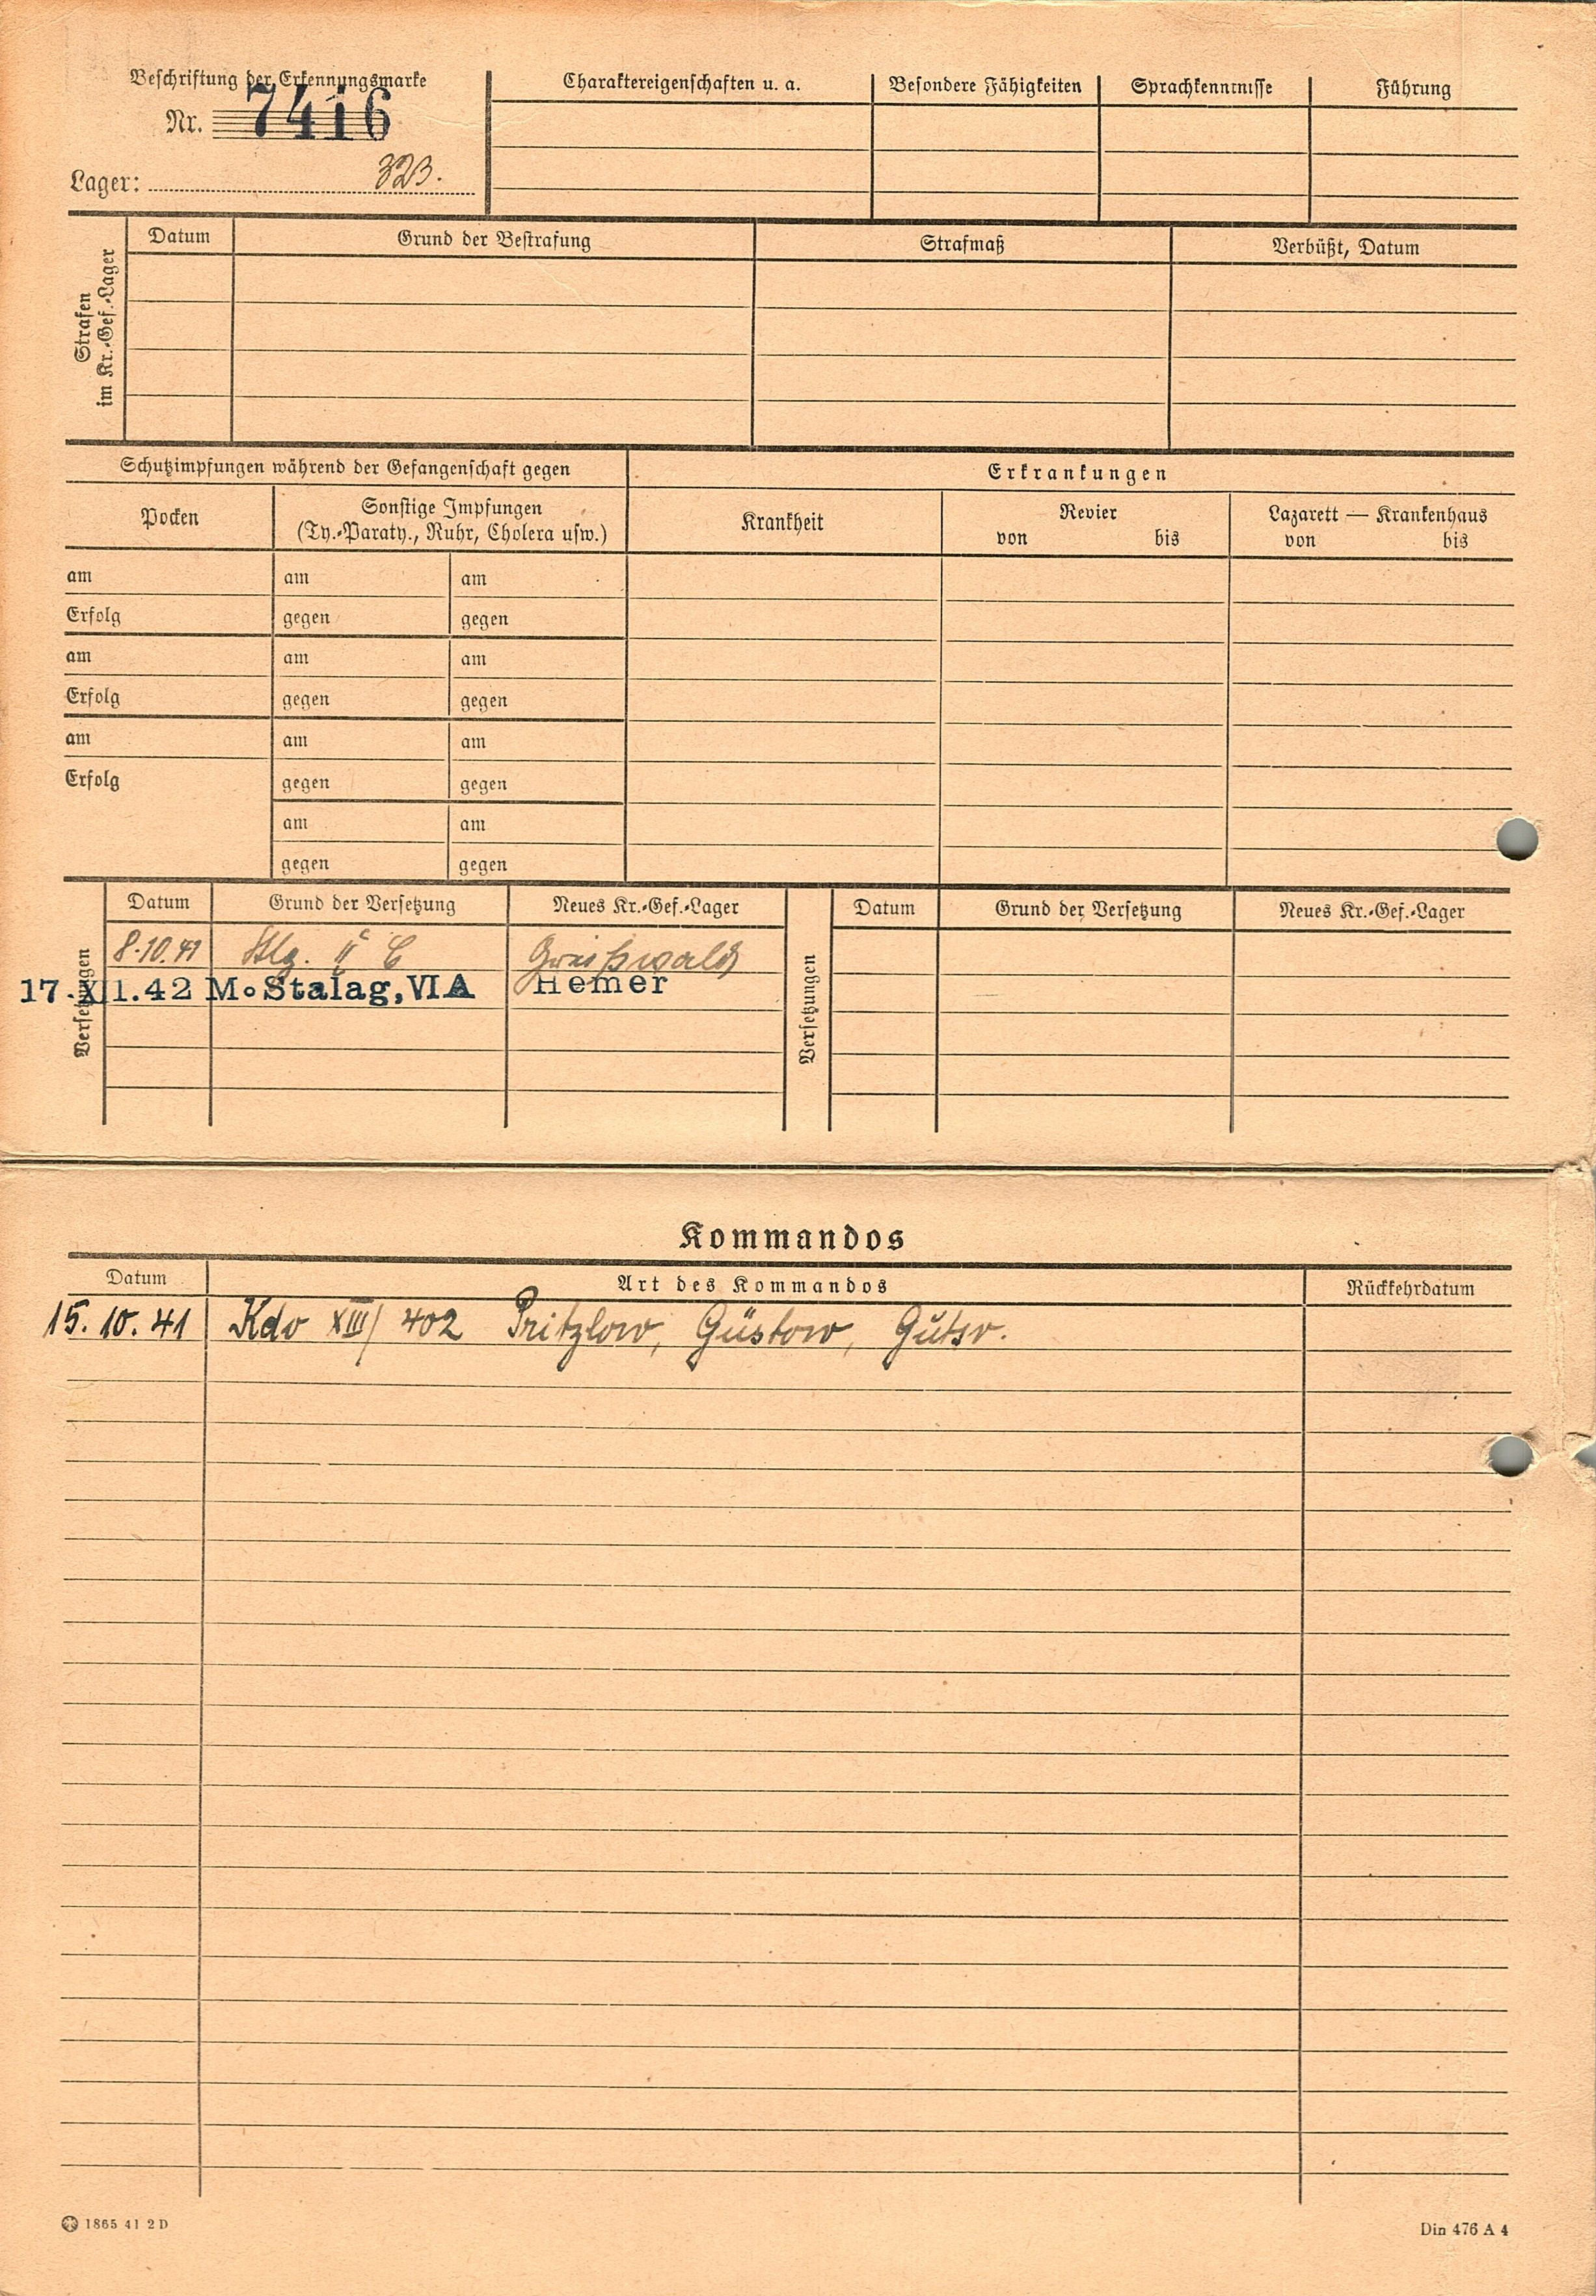 Beschriftung der Erkennungsmarke
Nr. 7416
Lager: 323.
Charaktereigenschaften u. a.
Besondere Fähigkeiten
Sprachkenntnisse
Führung
Strafen
im Kr.-Gef.-Lager
Datum
Grund der Bestrafung
Strafmaß
Verbüßt, Datum
Schutzimpfungen während der Gefangenschaft gegen
Erkrankungen
Pocken
Sonstige Impfungen
(Ty.-Paraty., Ruhr, Cholera usw.)
Krankheit
Revier
von bis
Lazarett — Krankenhaus
von bis
am am am
Erfolg gegen gegen
am am am
Erfolg gegen gegen
am am am
Erfolg gegen gegen
am am
gegen gegen
Versetzungen
Datum Grund der Versetzung Neues Kr.-Gef.-Lager
8.10.41 Stlg. II C Greifswald
17.XII.42 M.Stalag,VIA Hemer
Versetzungen
Datum Grund der Versetzung Neues Kr.-Gef.-Lager
Kommandos
Datum Art des Kommandos Rückkehrdatum
15.10.41 Kdo XIII/ 402 Pritzlow, Güstow, Gutsv.
1865 41 2 D
Din 476 A 4